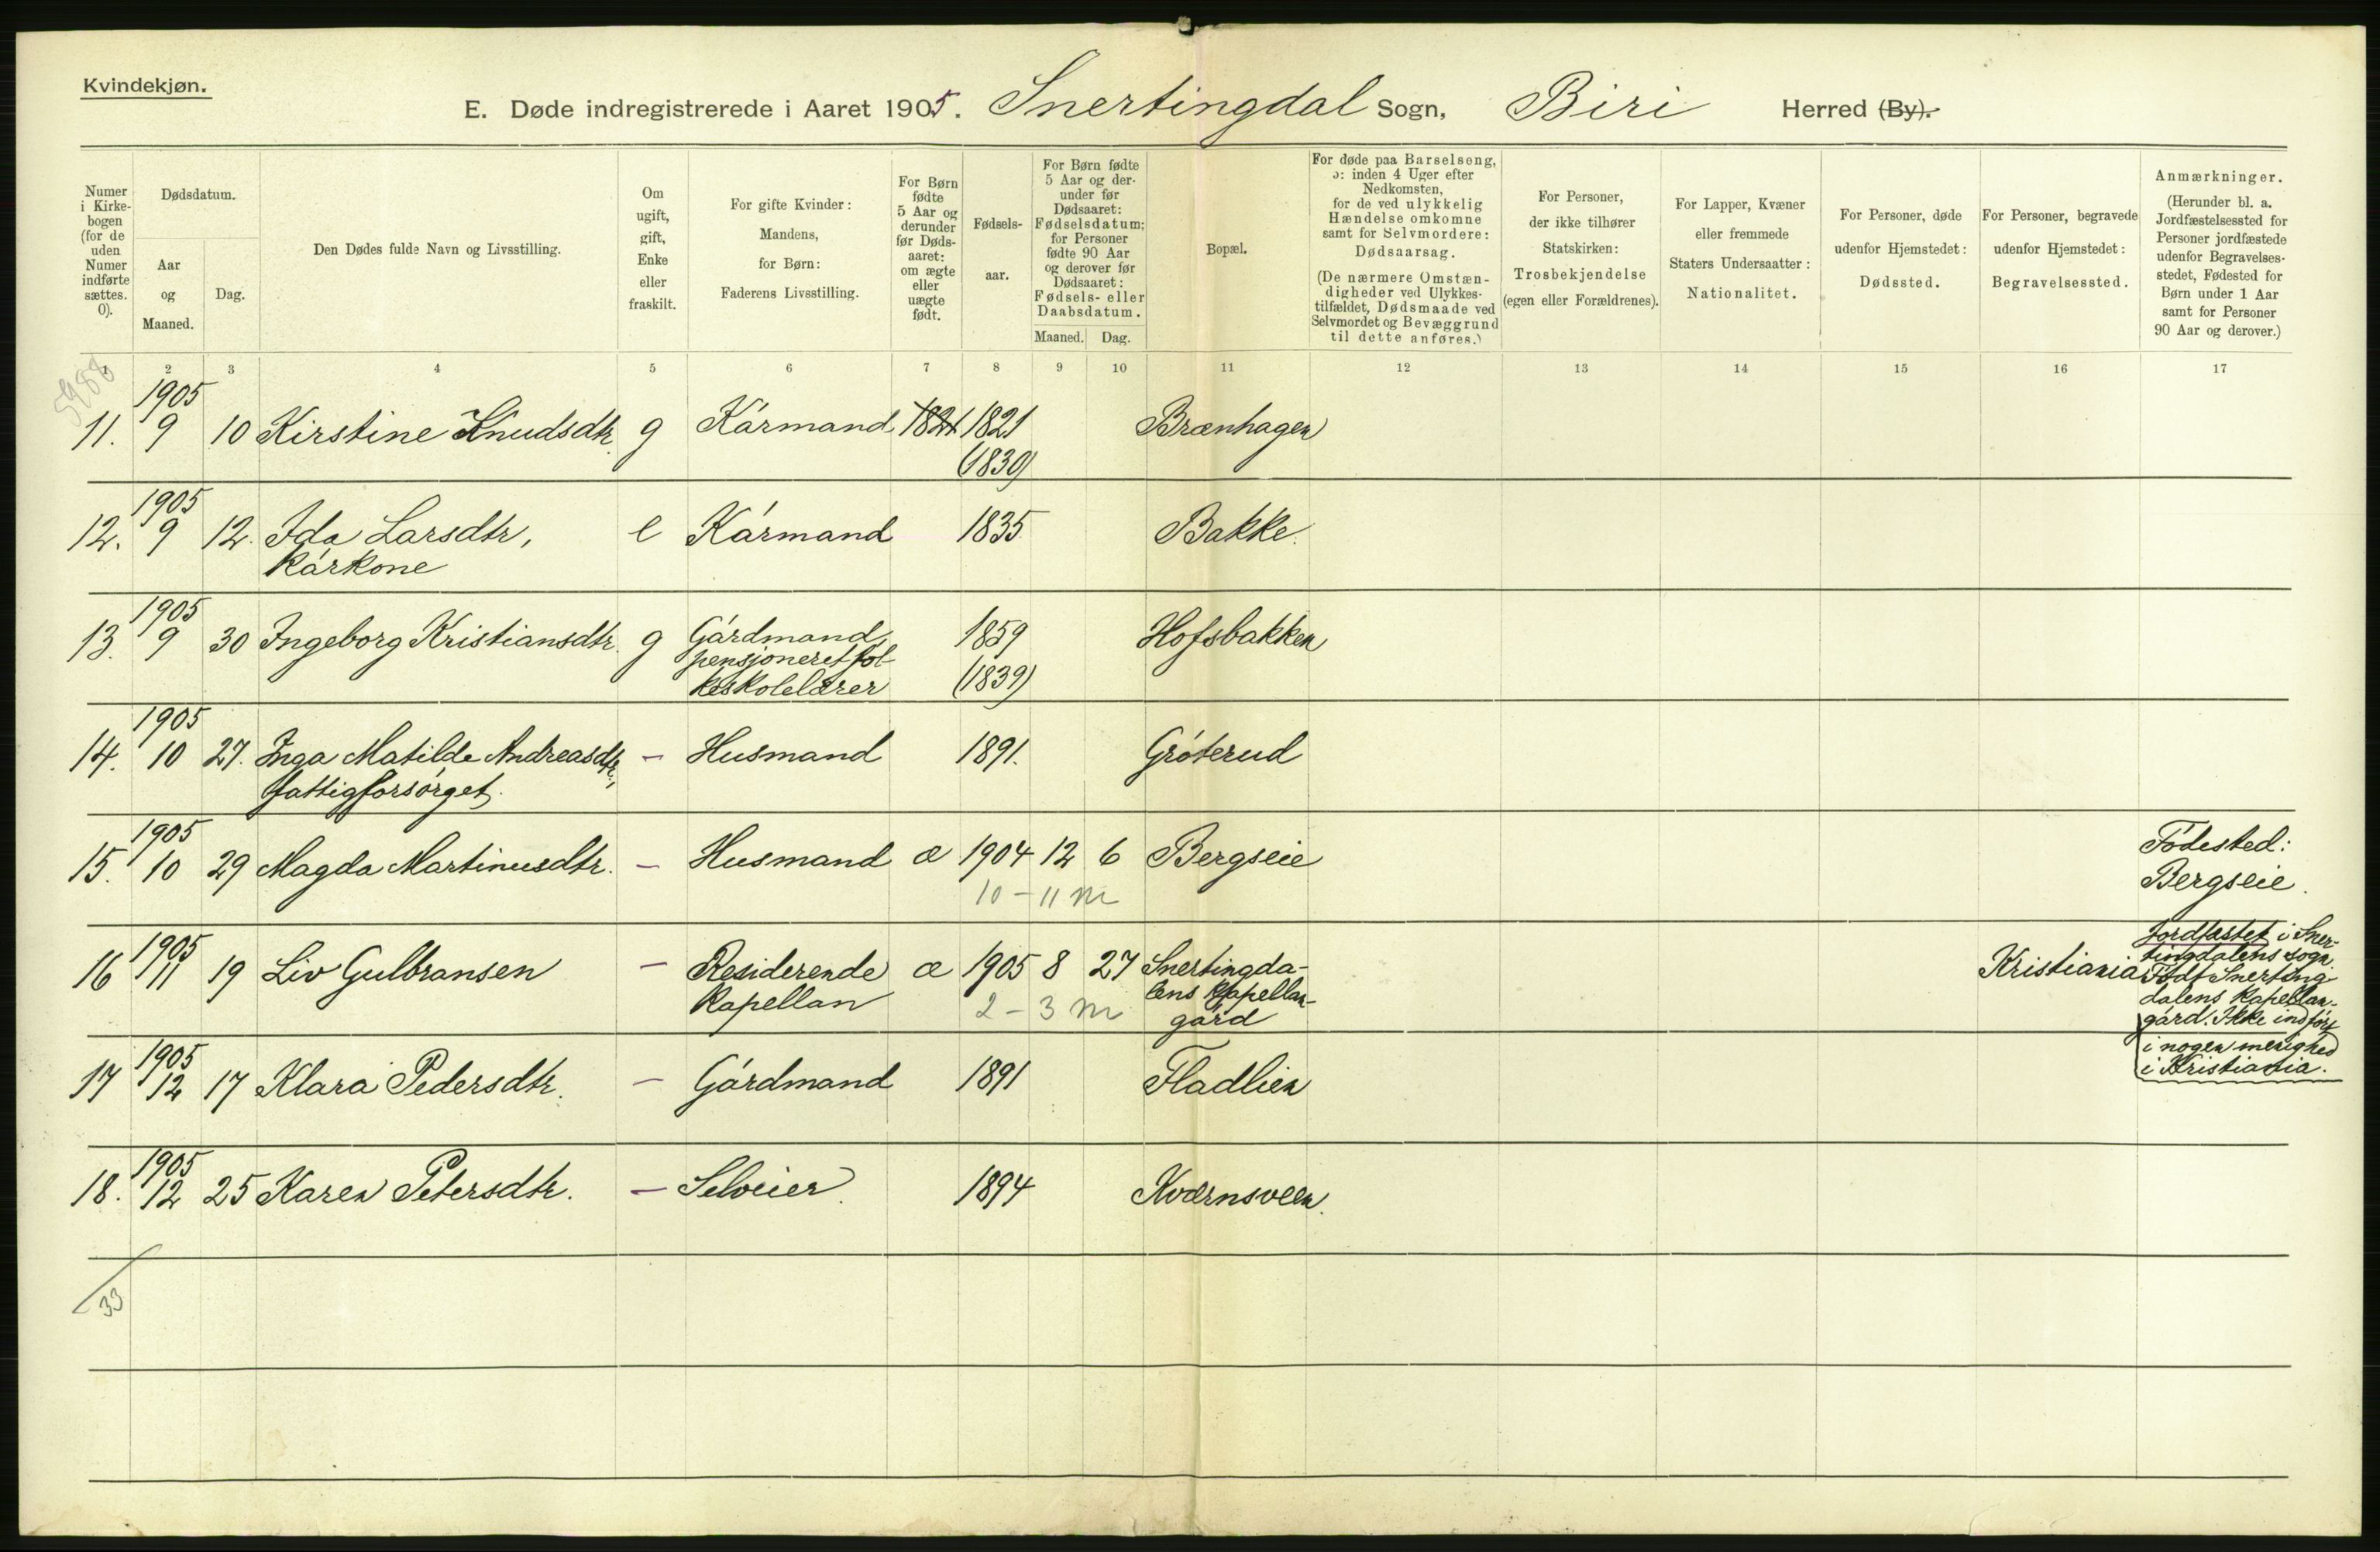 Kvindekjøn.
E. Døde indregistrerede i Aaret 1905. Snertingdal Sogn, Biri Herred (By).
Numer i Kirkebogen (for de uden Numer indførte sættes. 0).
Dødsdatum.
Aar og Maaned.
Dag.
Den Dødes fulde Navn og Livsstilling.
Om ugift, gift, Enke eller fraskilt.
For gifte Kvinder: Mandens, for Børn: Faderens Livsstilling.
For Børn fødte 5 Aar og derunder før Dødsaaret: om ægte eller uægte født.
Fødselsaar.
For Børn fødte 5 Aar og derunder før Dødsaaret: Fødselsdatum; for Personer fødte 90 Aar og derover før Dødsaaret: Fødsels- eller Daabsdatum.
Maaned. Dag.
Bopæl.
For døde paa Barselseng, ɔ: inden 4 Uger efter Nedkomsten, for de ved ulykkelig Hændelse omkomne samt for Selvmordere: Dødsaarsag.
(De nærmere Omstændigheder ved Ulykkestilfældet, Dødsmaade ved Selvmordet og Bevæggrund til dette anføres.)
For Personer, der ikke tilhører Statskirken: Trosbekjendelse (egen eller Forældrenes).
For Lapper, Kvæner eller fremmede Staters Undersaatter: Nationalitet.
For Personer, døde udenfor Hjemstedet: Dødssted.
For Personer, begravede udenfor Hjemstedet: Begravelsessted.
Anmærkninger.
(Herunder bl. a. Jordfæstelsessted for Personer jordfæstede udenfor Begravelsesstedet, Fødested for Børn under 1 Aar samt for Personer 90 Aar og derover.)
1 2 3 4 5 6 7 8 9 10 11 12 13 14 15 16 17
5988
1905
11. 9 10 Kirstine Knudsdtr. g Kármand 1821 1821 Brænhagen
(1830)
1905
12. 9 12. Ida Larsdtr, e Kármand 1835 Bakke.
kárkone
1905
13. 9 30 Ingeborg Kristiansdtr. g Gárdmand, 1859 Hofsbakken
pensjoneret fol-
keskolelærer (1839)
1905
14. 10 27. Inga Matilde Andreasdtr., — Husmand 1891. Gróterud
fattigforsórget.
1905
15. 10 29 Magda Martinusdtr. — Husmand æ 1904 12 6 Bergseie Fódested:
10 - 11 m Bergseie.
1905
16 11 19 Liv Gulbransen — Residerende æ 1905 8 27 Snertingda- Kristiania Jordfæstet i Sner-
kapellan 2 - 3 m lens kapellan- tingdalens sogn.
gárd Fódt Snerting-
dalens kapellan-
gárd. Ikke indfórt
i nogen menighed
i Kristiania.
1905
17 12 17 Klara Pedersdtr. — Gárdmand 1891 Fladlien
1905
18. 12 25 Karen Petersdtr. — Selveier. 1894 Kværnsveen.
33